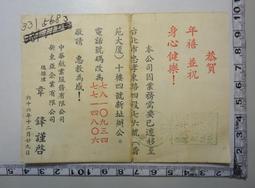 恭賀
年禧 並祝
身心健樂！
本公司因業務需要已遷移至
台北市忠孝東路四段七六號（
苑大廈）十樓四號新址辦公。
電話號碼改為七八一〇九三四
七七一四八〇六
敬請 惠教為感！
中華航業服務有限公司
新東亞企業有限公司
章 鋒謹啓
六十六年十二月廿九日
331568